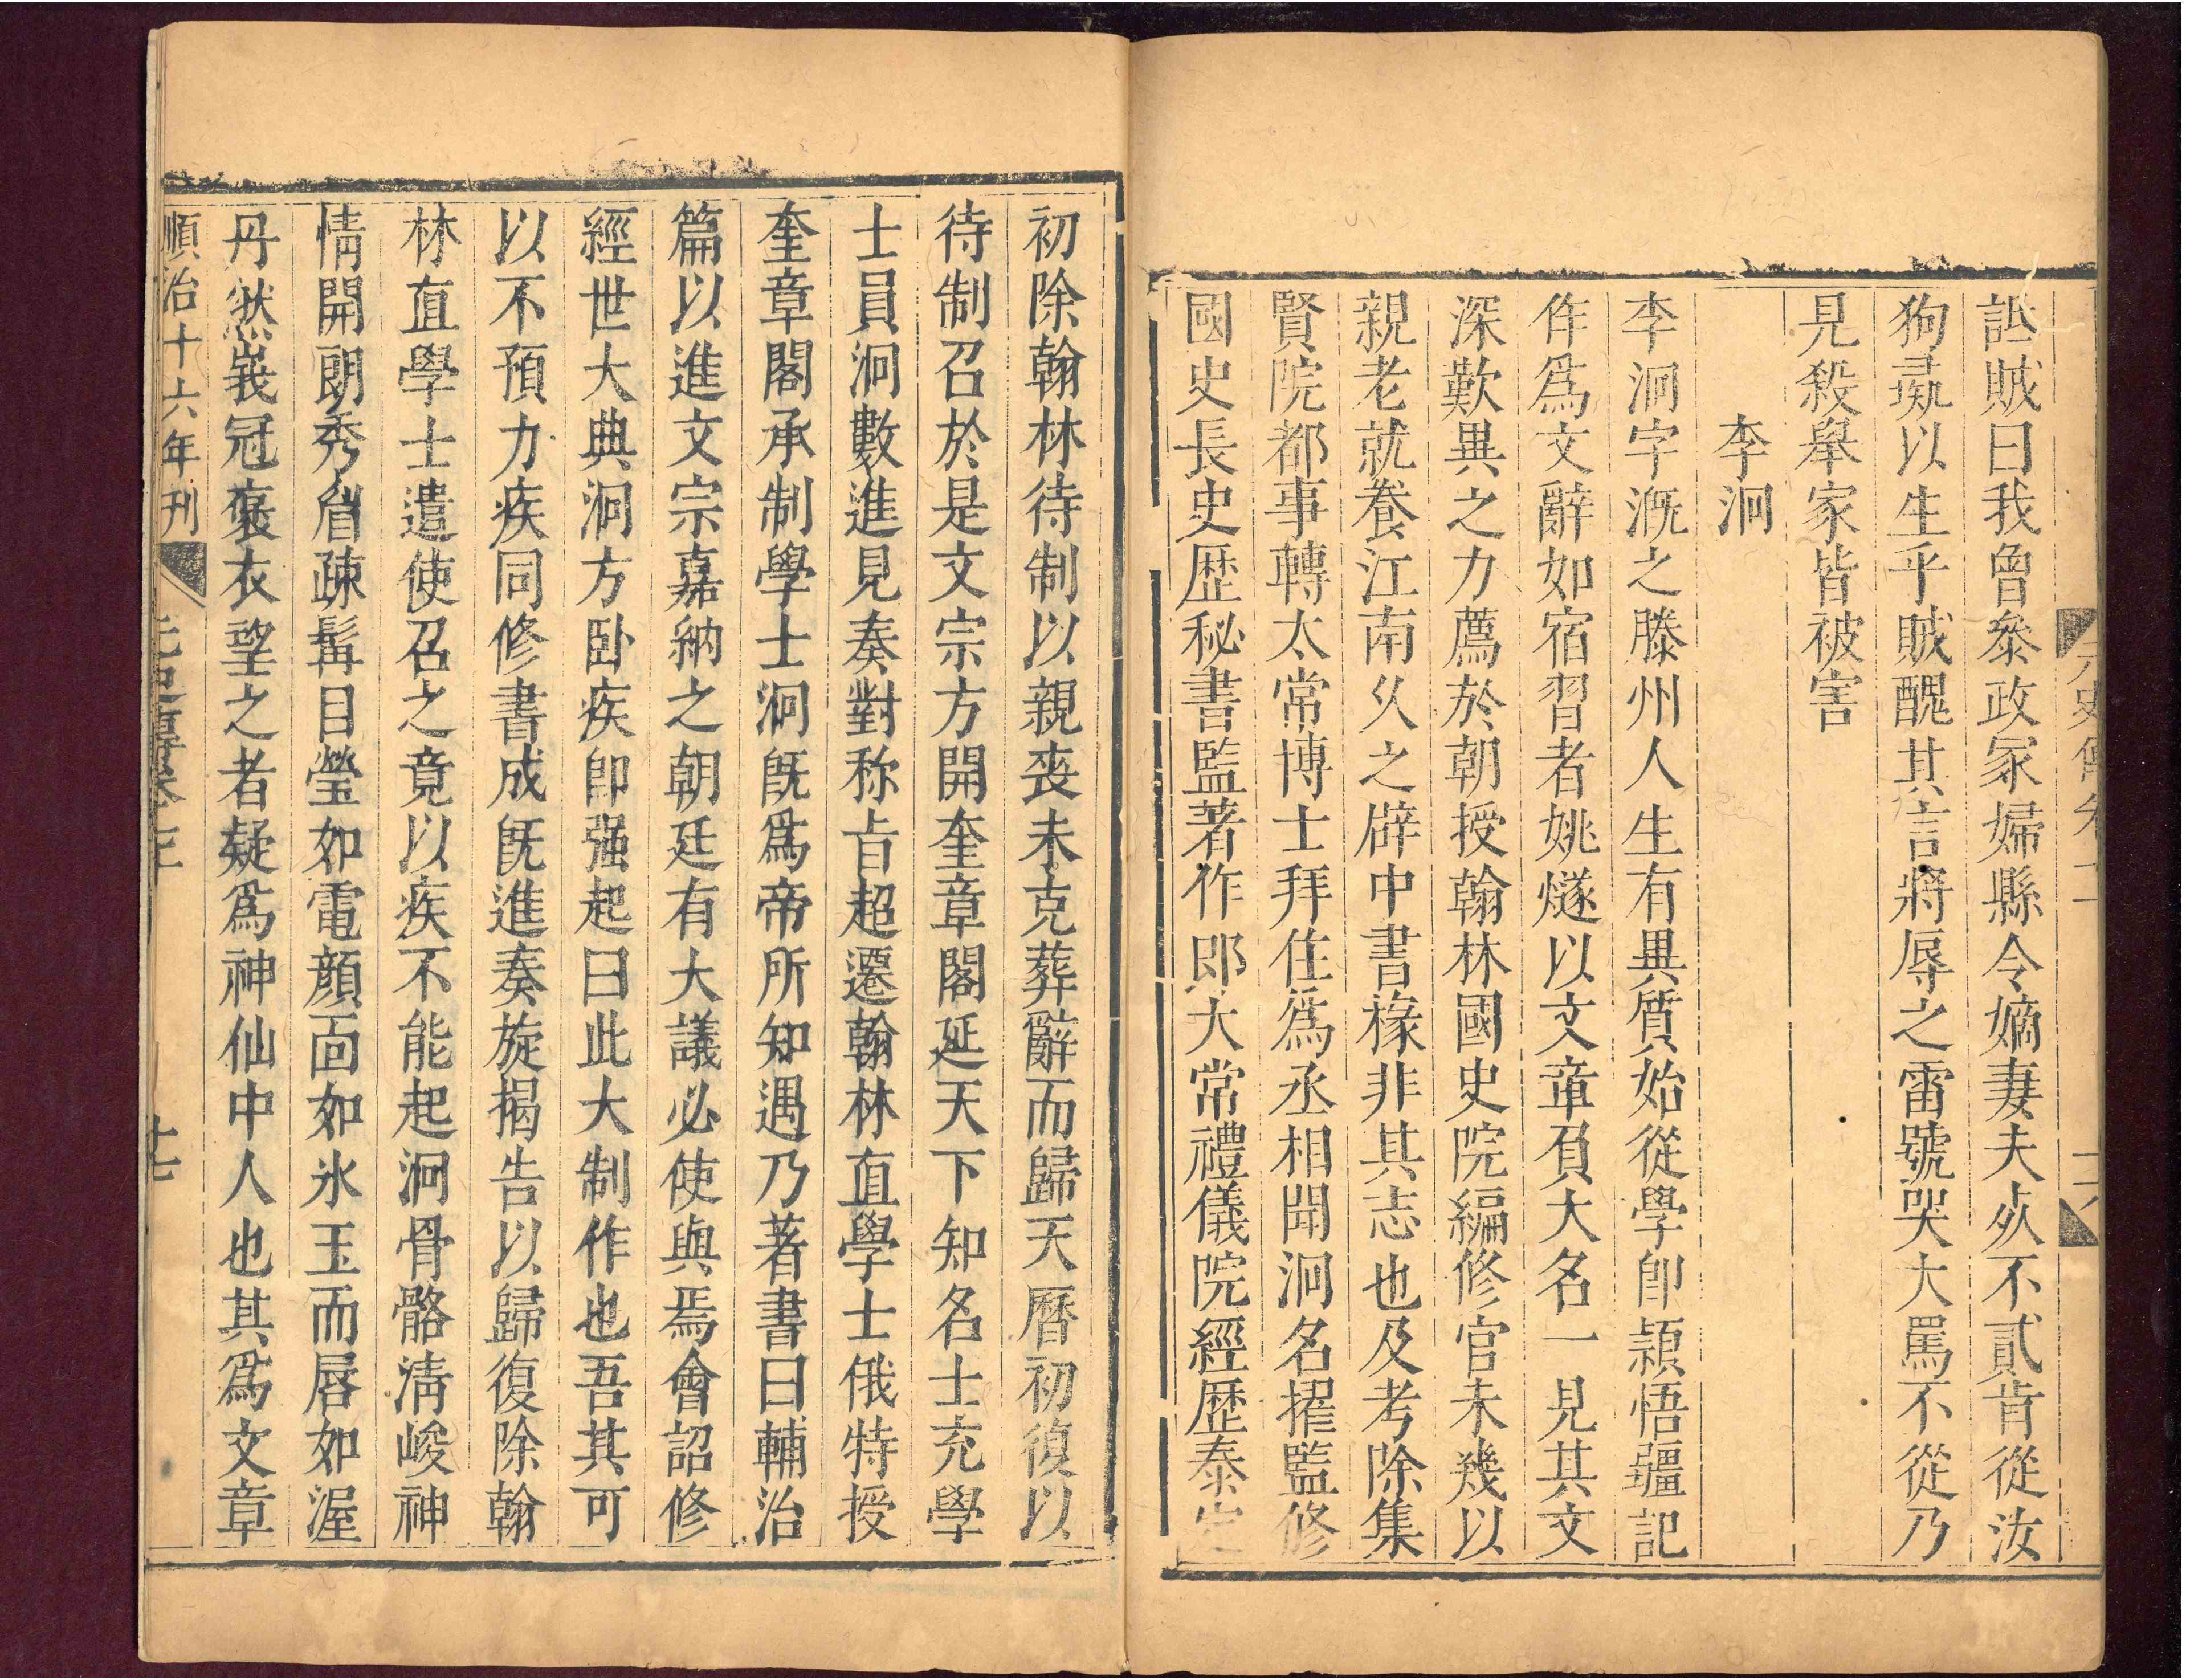 詆賊曰我曾叅政冢婦縣令嫡妻夫死不貳肯從汝
狗彘以生乎賊醜其言將辱之雷號哭大罵不從乃
見殺舉家皆被害
李泂
李泂字溉之滕州人生有異質始從學卽頴悟疆記
作爲文辭如宿習者姚燧以文章負大名一見其文
深歎異之力薦於朝授翰林國史院編修官未幾以
親老就養江南乆之辟中書椽非其志也及考除集
賢院都事轉太常博士拜住爲丞相聞泂名擢監修
國史長史歷秘書監著作郎太常禮儀院經歷泰定
初除翰林待制以親喪未克葬辭而歸天曆初復以
待制召於是文宗方開奎章閣延天下知名士充學
士員泂數進見奏對称旨超遷翰林直學士俄特授
奎章閣承制學士泂旣爲帝所知遇乃著書曰輔治
篇以進文宗嘉納之朝廷有大議必使與焉會詔修
經世大典泂方卧疾卽强起曰此大制作也吾其可
以不預力疾同修書成旣進奏旋揭告以歸復除翰
林直學士遣使召之竟以疾不能起泂骨骼清峻神
情開朗秀眉疎髯目瑩如電顔面如氷玉而唇如渥
丹然峩冠褒衣望之者疑爲神仙中人也其爲文章
順治十六年刊